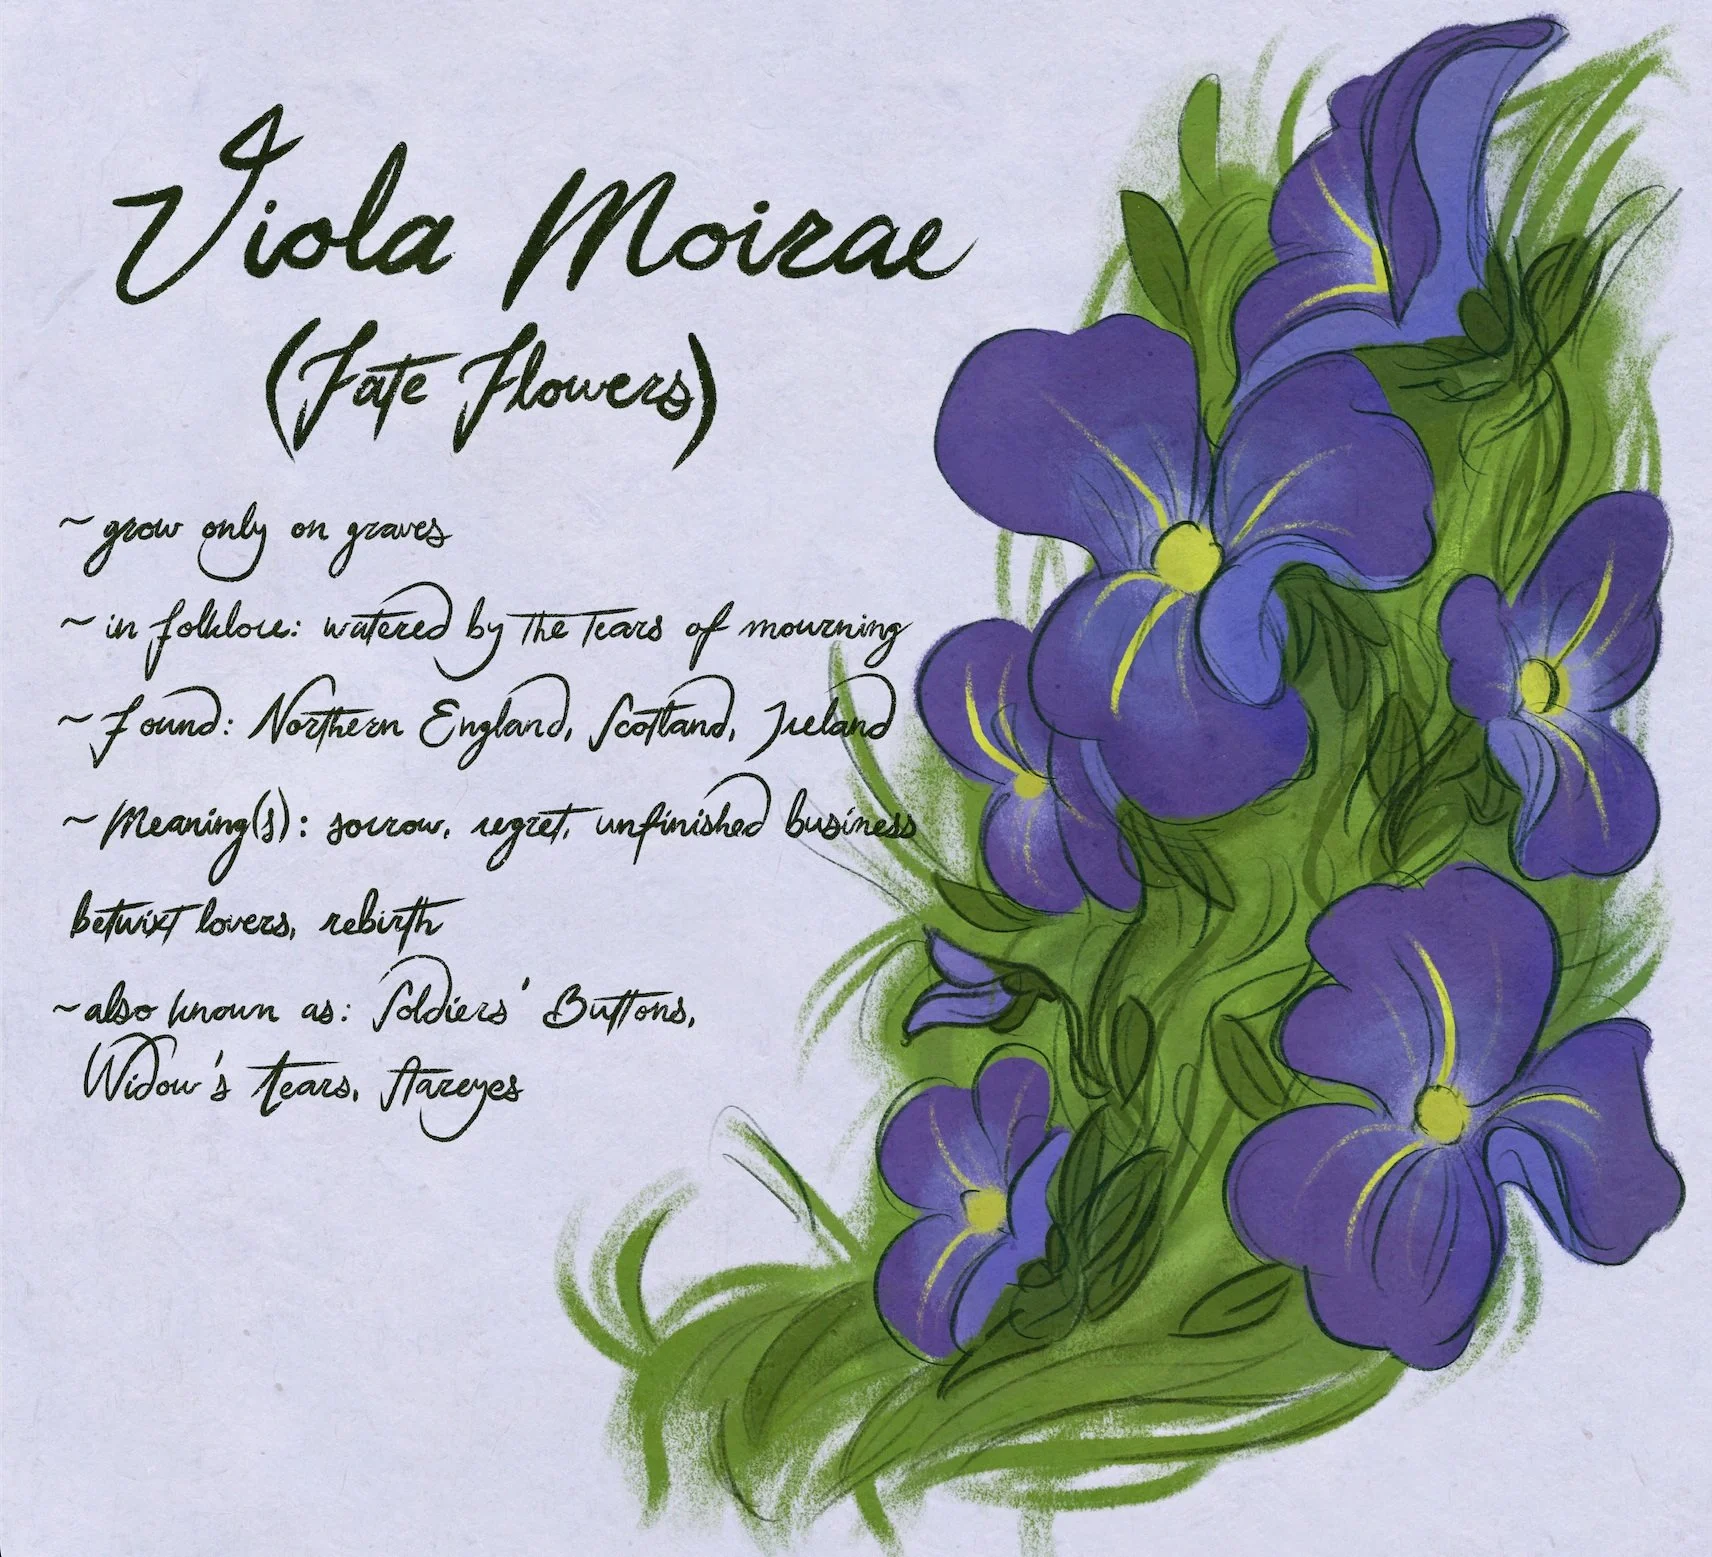 Viola Moirae
(Fate Flowers)
~ grow only on graves
~ in folklore: watered by the tears of mourning
~ Found: Northern England, Scotland, Ireland
~ Meaning(s): sorrow, regret, unfinished business
betwixt lovers, rebirth
~ also known as: Soldiers' Buttons,
Widow's tears,